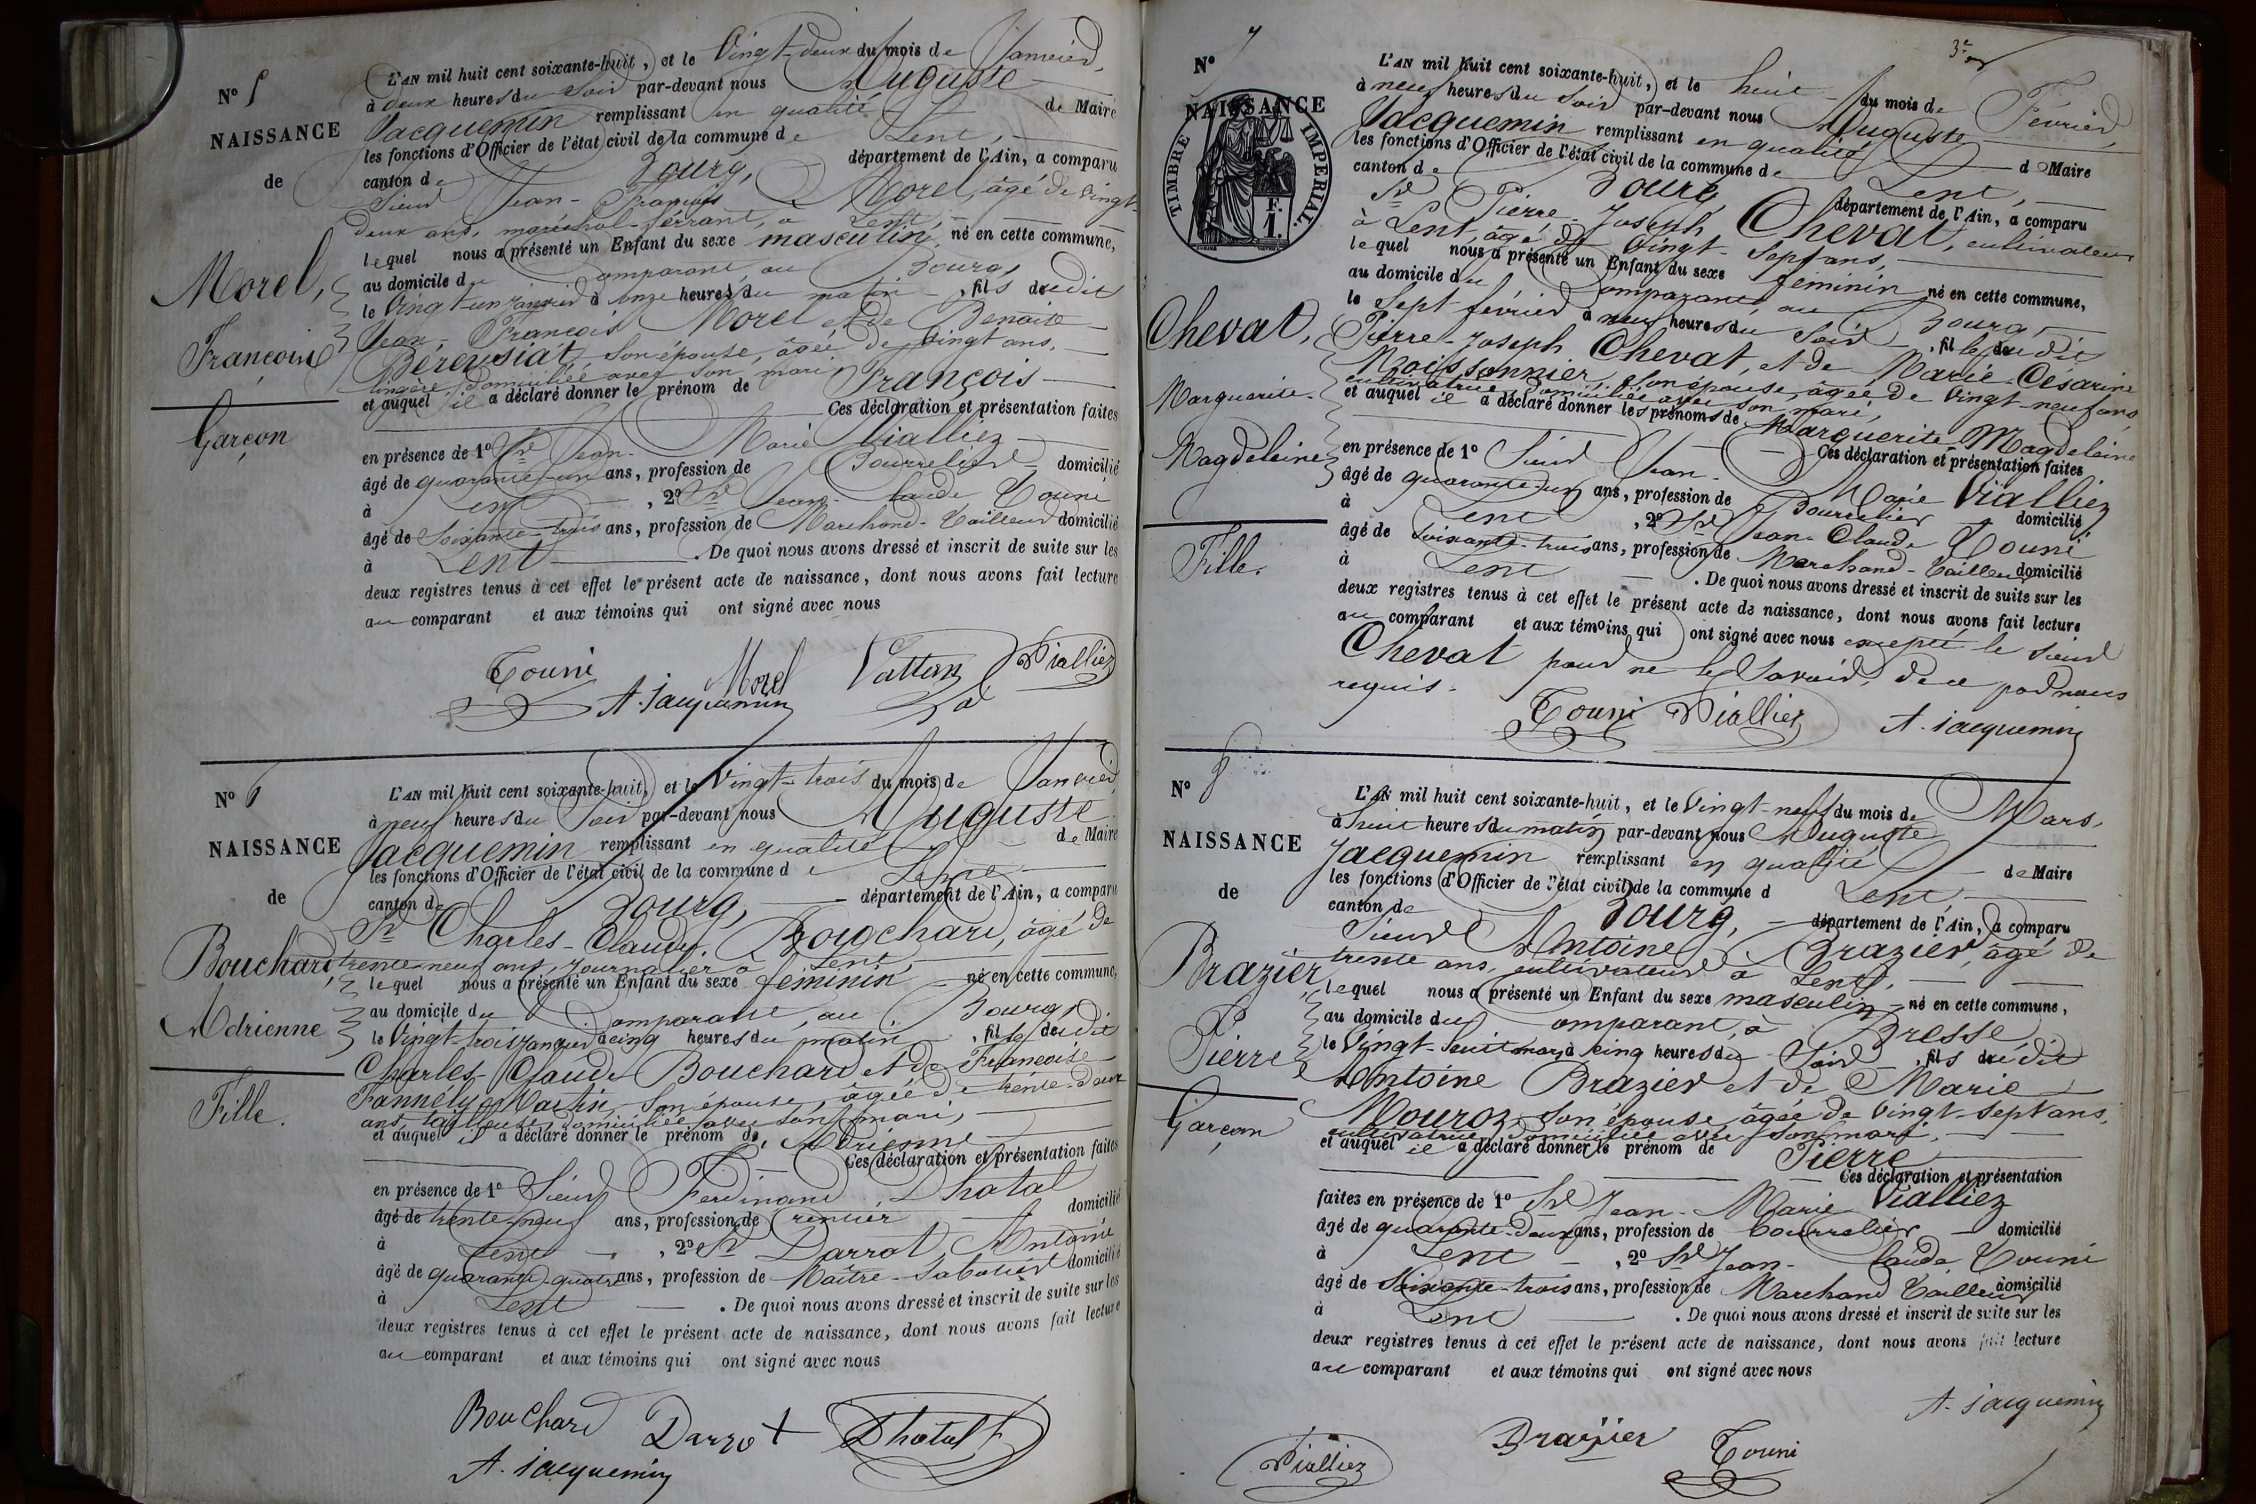 N° 5
NAISSANCE
de
Morel,
François
Garçon
L'AN mil huit cent soixante-huit, et le Vingt-deux du mois de Janvier,
à deux heures du Soir par-devant nous Auguste
Jacquemin remplissant en qualité de Maire
les fonctions d'Officier de l'état civil de la commune de Lent,
canton de Bourg, département de l'Ain, a comparu
Sieur Jean-François Morel, âgé de vingt-
deux ans, maréchal-ferrant, à Lent,
lequel nous a présenté un Enfant du sexe masculin, né en cette commune,
au domicile du Comparant, au Bourg,
le Vingt-un janvier à onze heures du matin, fils dudit
Jean-François Morel et de Benoite
Béreysiat, son épouse, âgée de vingt ans,
lingère, domiciliée avec son mari,
et auquel il a déclaré donner le prénom de François
Ces déclaration et présentation faites
en présence de 1° Sr Jean-Marie Vialliez
âgé de quarante-un ans, profession de Bourrelier domicilié
à Lent, 2° Sr Jean-Claude Touni
âgé de Soixante-trois ans, profession de Marchand-Tailleur domicilié
à Lent. De quoi nous avons dressé et inscrit de suite sur les
deux registres tenus à cet effet le présent acte de naissance, dont nous avons fait lecture
au comparant et aux témoins qui ont signé avec nous
Touni Morel Vialliez
A. Jacquemin
N° 6
NAISSANCE
de
Bouchard,
Adrienne
Fille.
L'AN mil huit cent soixante-huit, et le Vingt-trois du mois de Janvier,
à neuf heures du Soir par-devant nous Auguste
Jacquemin remplissant en qualité de Maire
les fonctions d'Officier de l'état civil de la commune de Lent
canton de Bourg, département de l'Ain, a comparu
Sr Charles-Claude Bouchard, âgé de
trente-neuf ans, journalier à Lent,
lequel nous a présenté un Enfant du sexe féminin né en cette commune,
au domicile du Comparant, au Bourg,
le Vingt-trois janvier à cinq heures du matin, fille dudit
Charles-Claude Bouchard et de Françoise
Fannély Martin, son épouse, âgée de trente-deux
ans, tailleuse, domiciliée avec son mari,
et auquel il a déclaré donner le prénom de Adrienne
Ces déclaration et présentation faites
en présence de 1° Sieur Ferdinand Chatal
âgé de trente-neuf ans, profession de rentier domicilié
à Lent, 2° Sr Darrot, Antoine
âgé de quarante-quatre ans, profession de Maître-Sabotier domicilié
à Lent. De quoi nous avons dressé et inscrit de suite sur les
deux registres tenus à cet effet le présent acte de naissance, dont nous avons fait lecture
au comparant et aux témoins qui ont signé avec nous
Bouchard Darrot Chatal F
A. Jacquemin
3e
N° 7
NAISSANCE
TIMBRE IMPERIAL.
F. 1.
Chevat,
Marguerite-
Magdeleine
Fille.
L'AN mil huit cent soixante-huit, et le huit du mois de Février,
à neuf heures du Soir par-devant nous Auguste
Jacquemin remplissant en qualité de Maire
les fonctions d'Officier de l'état civil de la commune de Lent,
canton de Bourg, département de l'Ain, a comparu
Sr Pierre-Joseph Chevat, cultivateur
à Lent, âgé de Vingt-Sept ans,
lequel nous a présenté un Enfant du sexe féminin né en cette commune,
au domicile du Comparant, au Bourg,
le Sept février à neuf heures du Soir, fille dudit
Pierre-Joseph Chevat, et de Marie-Césarine
Moissonnier, son épouse, âgée de Vingt-neuf ans,
cultivatrice, domiciliée avec son mari,
et auquel il a déclaré donner les prénoms de Marguerite-Magdeleine
Ces déclaration et présentation faites
en présence de 1° Sieur Jean-Marie Vialliez
âgé de quarante-un ans, profession de Bourrelier domicilié
à Lent, 2° Sr Jean-Claude Touni
âgé de Soixante-trois ans, profession de Marchand-Tailleur domicilié
à Lent. De quoi nous avons dressé et inscrit de suite sur les
deux registres tenus à cet effet le présent acte de naissance, dont nous avons fait lecture
au comparant et aux témoins qui ont signé avec nous excepté le Sieur
Chevat pour ne le Savoir, de ce par nous
requis.
Touni Vialliez A. Jacquemin
N° 8
NAISSANCE
de
Brazier,
Pierre
Garçon
L'AN mil huit cent soixante-huit, et le Vingt-neuf du mois de Mars,
à huit heures du matin par-devant nous Auguste
Jacquemin remplissant en qualité de Maire
les fonctions d'Officier de l'état civil de la commune d Lent,
canton de Bourg, département de l'Ain, a comparu
Sieur Antoine Brazier, âgé de
trente ans, cultivateur à Lent,
lequel nous a présenté un Enfant du sexe masculin né en cette commune,
au domicile du Comparant, à Bresse
le Vingt-huit mars à cinq heures du Soir, fils dudit
Antoine Brazier et de Marie
Mouroz, son épouse, âgée de Vingt-Sept ans,
cultivatrice, domiciliée avec son mari,
et auquel il a déclaré donner le prénom de Pierre
Ces déclaration et présentation
faites en présence de 1° Sr Jean-Marie Vialliez
âgé de quarante-deux ans, profession de bourrelier domicilié
à Lent, 2° Sr Jean-Claude Touni
âgé de Soixante-trois ans, profession de Marchand Tailleur domicilié
à Lent. De quoi nous avons dressé et inscrit de suite sur les
deux registres tenus à cet effet le présent acte de naissance, dont nous avons fait lecture
au comparant et aux témoins qui ont signé avec nous
A. Jacquemin
Vialliez Brazier Touni